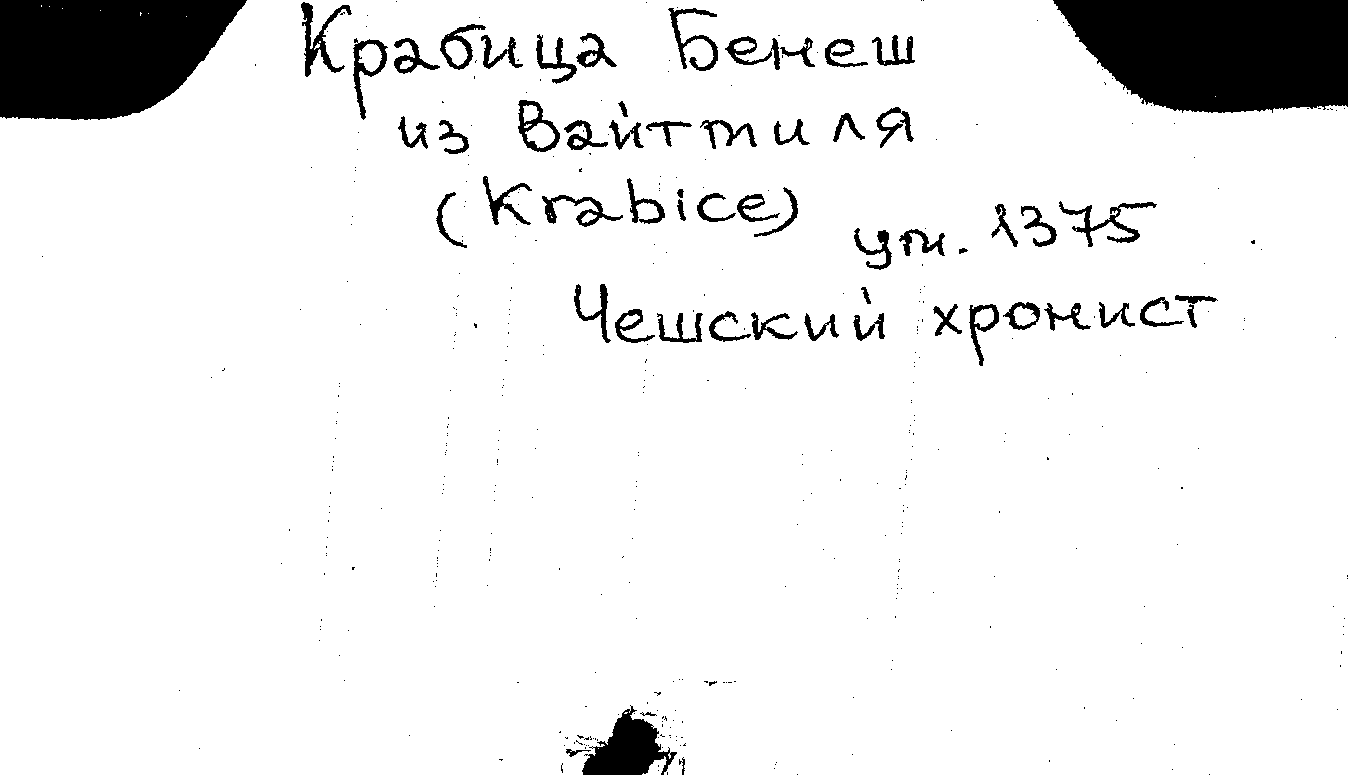 Крабица Бенеш
из Вайтмиля
(Krabice) ум. 1375
Чешский хронист